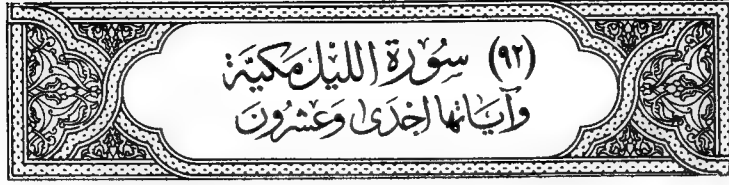 (٩٢) سُوْرَة اللَّيْل مَكِيَّة
وَآيَاتهَا إِحْدَى وَعِشْرُونَ